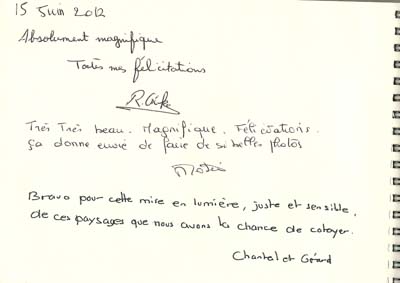 15 Juin 2012
Absolument magnifique
Toutes mes félicitations
Très Très beau. Magnifique. Félicitations.
ça donne envie de faire de si belles photos
Bravo pour cette mise en lumière, juste et sensible,
de ces paysages que nous avons la chance de cotoyer.
Chantal et Gérard